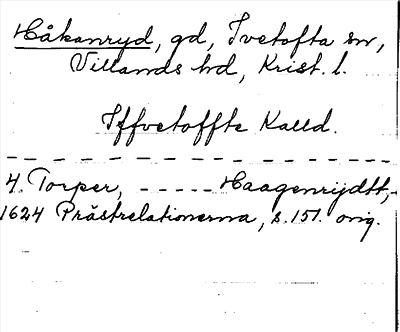 Håkanryd, gd, Ivetofta sn,
Villands hd, Krist. l.
Iffvetoffte Kalld.
4. Torper, ----- Haagenrijdtt,
1624 Prästrelationerna, s. 151. orig.